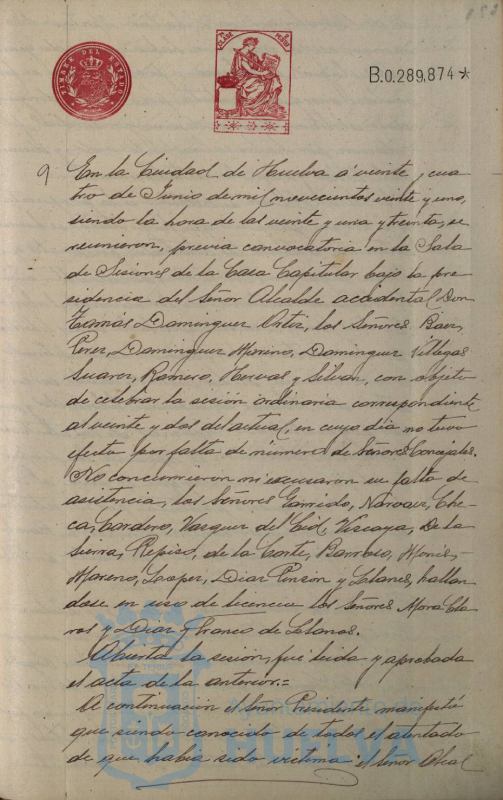 TIMBRE DEL ESTADO
B.0.289,874*
9 En la Ciudad de Huelva á veinte y cua
tro de Junio de mil novecientos veinte y uno,
siendo la hora de las veinte y una y treinta, se
reunieron, previa convocatoria en la Sala
de Sesiones de la Casa Capitular bajo la pre
sidencia del Señor Alcalde accidental Don
Tomás Dominguez Ortiz, los Señores Baez,
Perez, Dominguez Moreno, Dominguez Villegas
Suarez, Romero, Hervas y Silvan, con objeto
de celebrar la sesión ordinaria correspondiente
al veinte y dos del actual, en cuyo día no tuvo
efecto por falta de número de Señores Concejales.
No concurrieron ni excusaron su falta de
asistencia, los Señores Garrido, Narvaez, Che
ca, Cordero, Vazquez del Cid, Vizcaya, De la
Sierra, Repiso, de la Corte, Barroso, Monis,
Moreno, Lopez, Diaz Pinzón y Llanes, hallan
dose en uso de licencia los Señores Mora Cla
ros y Diaz y Franco de Llanos.
Abierta la sesión, fué leida y aprobada
el acta de la anterior.=
A continuación el Señor Presidente manifestó
que siendo conocido de todos el atentado
de que había sido victima el Señor Alcal
HUELVA